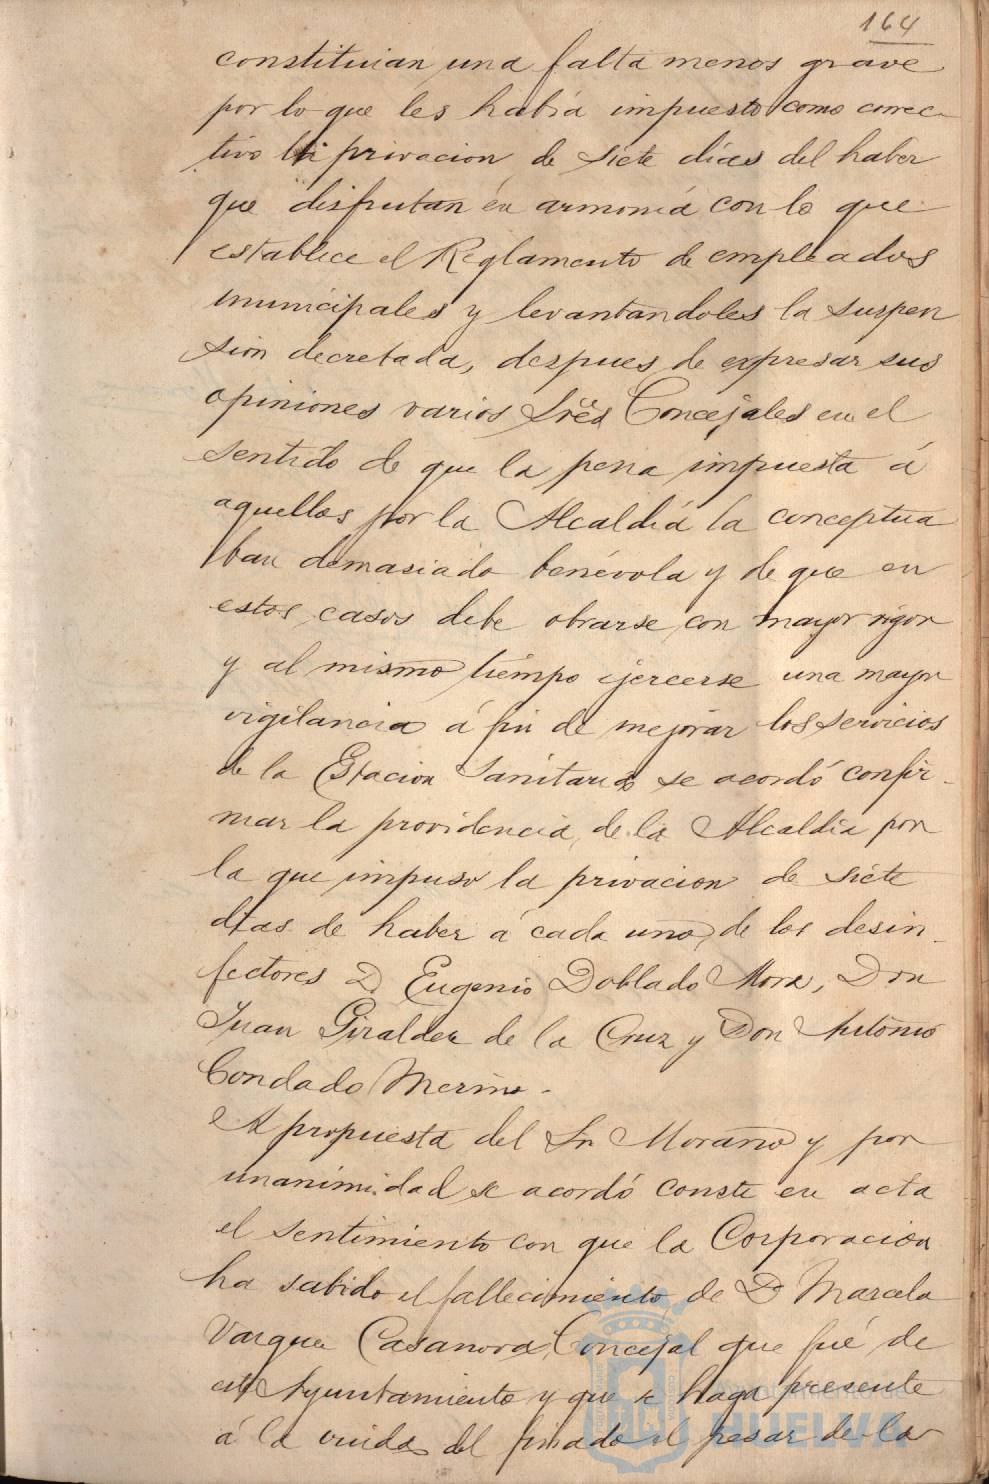 164
constituian una falta menos grave
por lo que les habia impuesto como correc-
tivo la privacion de siete dias del haber
que disfrutan en armonia con lo que
establece el Reglamento de empleados
municipales y levantandoles la suspen
sion decretada, despues de expresar sus
opiniones varios Sres Concejales en el
sentido de que la pena impuesta á
aquellos por la Alcaldia la conceptua
ban demasiado benévola y de que en
estos casos debe obrarse con mayor rigor
y al mismo tiempo ejercerse una mayor
vigilancia á fin de mejorar los servicios
de la Estacion Sanitaria se acordó confir-
mar la providencia de la Alcaldia por
la que impuso la privacion de siete
dias de haber á cada uno de los desin-
fectores D. Eugenio Doblado Mora, Don
Juan Giraldez de la Cruz y Don Antonio
Condado Merino.
A propuesta del Sr Moraño y por
unanimidad se acordó conste en acta
el sentimiento con que la Corporacion
ha sabido el fallecimiento de D Marcelo
Vazquez Casanova Concejal que fué de
este Ayuntamiento y que se haga presente
á la viuda del finado el pesar de la
Ayuntamiento de
HUELVA